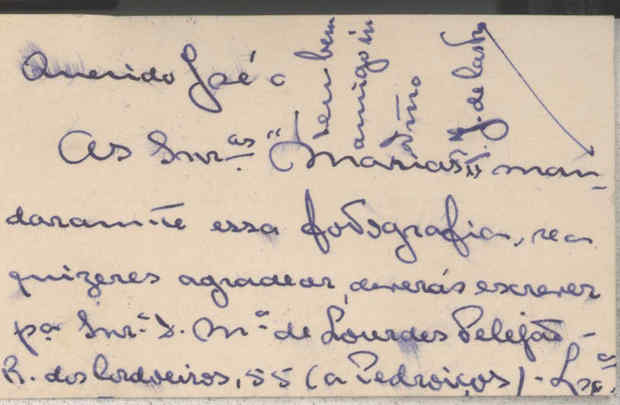 Querido José
As Snr.as "Marias" man-
daram-te essa fotografia, se a
quizeres agradecer, deverás escrever
pa Snr.a D. M.a de Lourdes Pelejão -
R. dos Cordoeiros, 55 (a Pedroiços) - Lxa
teu bem
amigo in
timo
J. de Castro